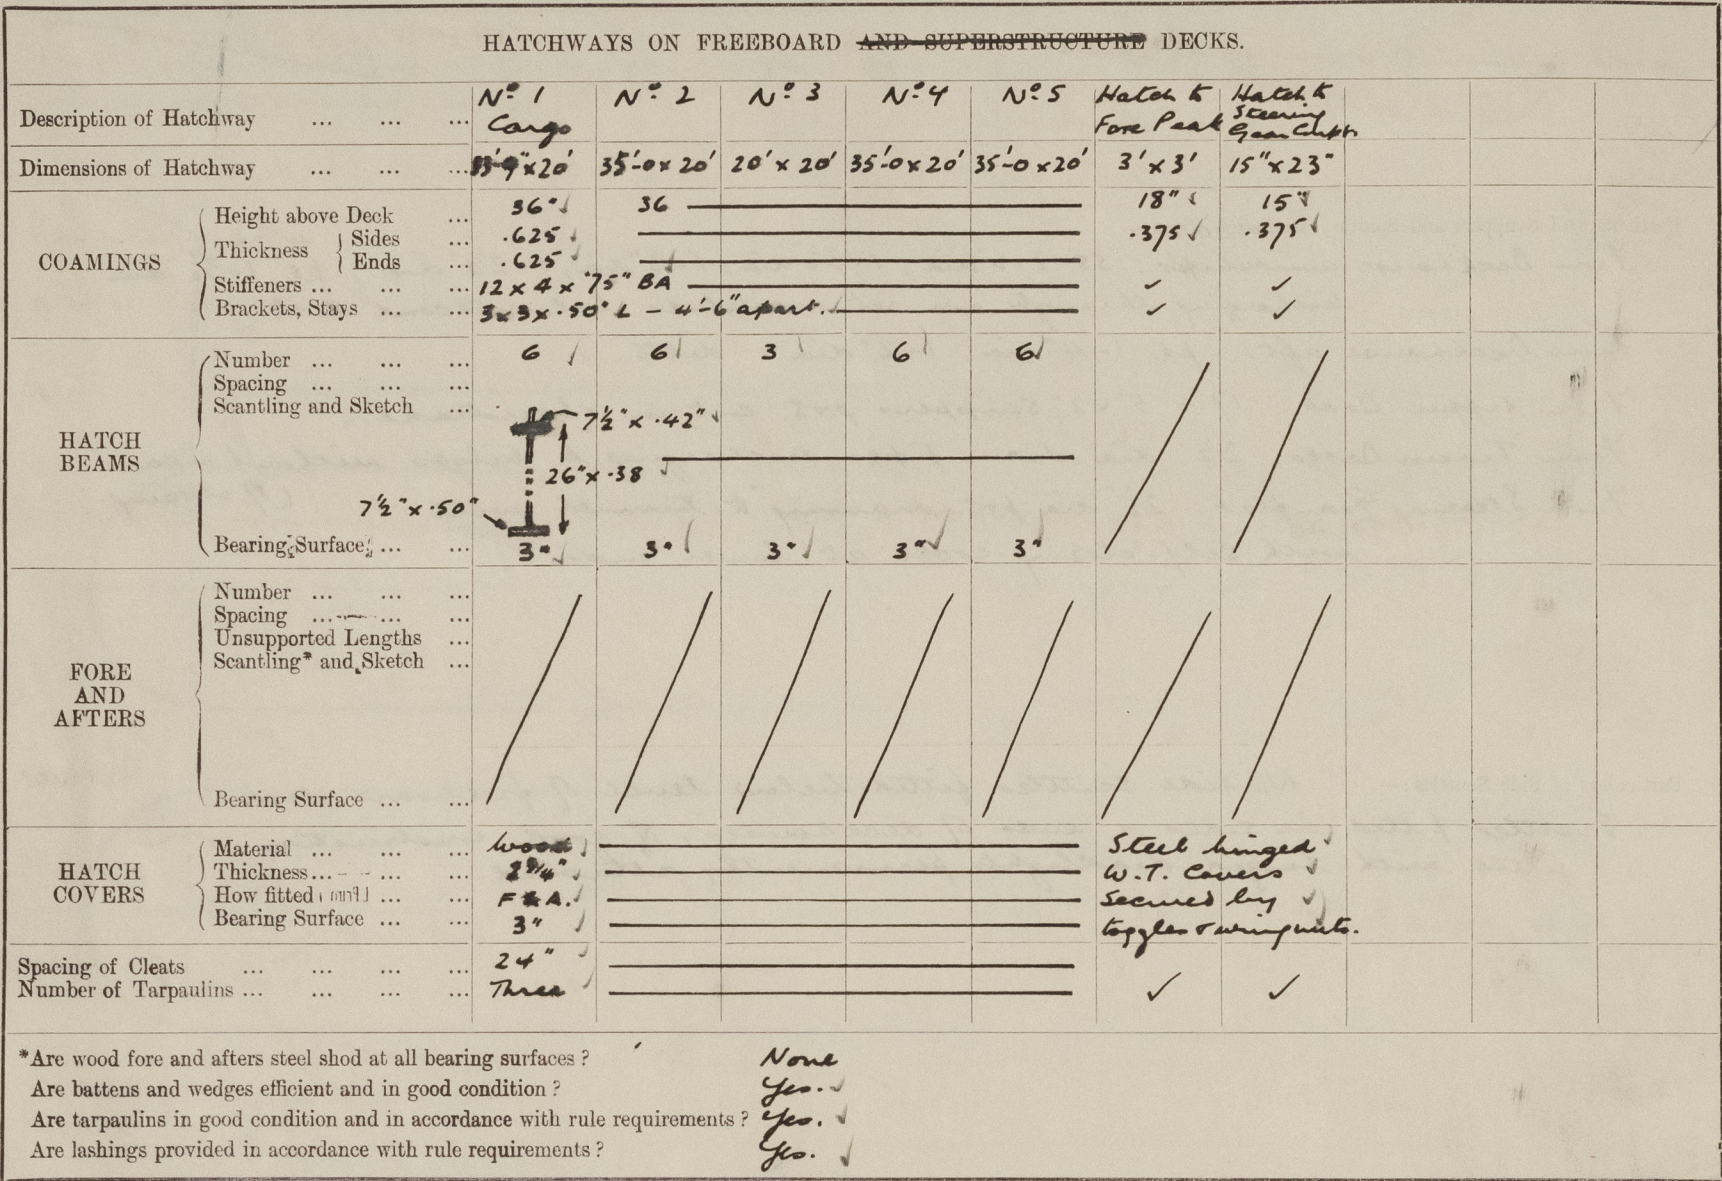 HATCHWAYS ON FREEBOARD AND SUPERSTRUCTURE DECKS.
Description of Hatchway ... ... ... Nº 1 Cargo Nº 2 Nº 3 Nº 4 Nº 5 Hatch to Fore Peak Hatch to Steering Gear Compt.
Dimensions of Hatchway ... ... ... 33'-9"x20' 35'-0x20' 20'x20' 35'-0x20' 35'-0x20' 3'x3' 15"x23"
COAMINGS
Height above Deck ... 36" 36 18" 15"
Thickness Sides ... .625 .375 .375
Ends ... .625
Stiffeners ... ... ... 12 x 4 x .75" BA ✓ ✓
Brackets, Stays ... ... 3x3x.50" L - 4'-6" apart. ✓ ✓
HATCH BEAMS
Number ... ... ... 6 6 3 6 6
Spacing ... ... ...
Scantling and Sketch ...
7½" x .42"
26" x .38
7½" x .50"
Bearing Surface ... ... 3" 3" 3" 3" 3"
FORE AND AFTERS
Number ... ... ...
Spacing ... ... ...
Unsupported Lengths ...
Scantling* and Sketch ...
Bearing Surface ... ...
HATCH COVERS
Material ... ... ... Wood Steel hinged
Thickness ... ... 2¾" W.T. Covers
How fitted ... ... F & A. Secured by
Bearing Surface ... ... 3" toggles & wing nuts.
Spacing of Cleats ... ... ... ... 24"
Number of Tarpaulins ... ... ... ... Three ✓ ✓
*Are wood fore and afters steel shod at all bearing surfaces? None
Are battens and wedges efficient and in good condition? Yes.
Are tarpaulins in good condition and in accordance with rule requirements? Yes.
Are lashings provided in accordance with rule requirements? Yes.